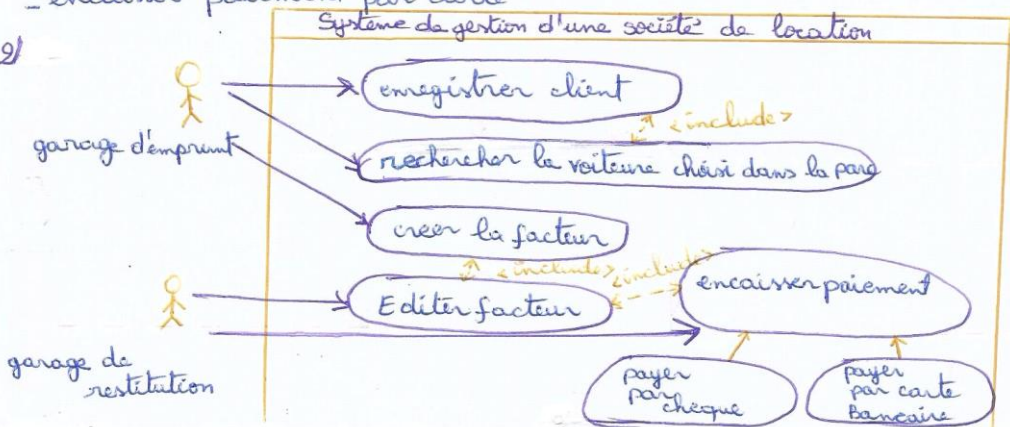 - encaisser paiement par carte
Système de gestion d'une société de location
2/
enregistrer client
<include>
garage d'emprunt
rechercher la voiteure choisi dans la parc
creer la facteur
<include> <include>
Editer facteur
encaisser paiement
garage de
restitution
payer
par
cheque
payer
par carte
Bancaire